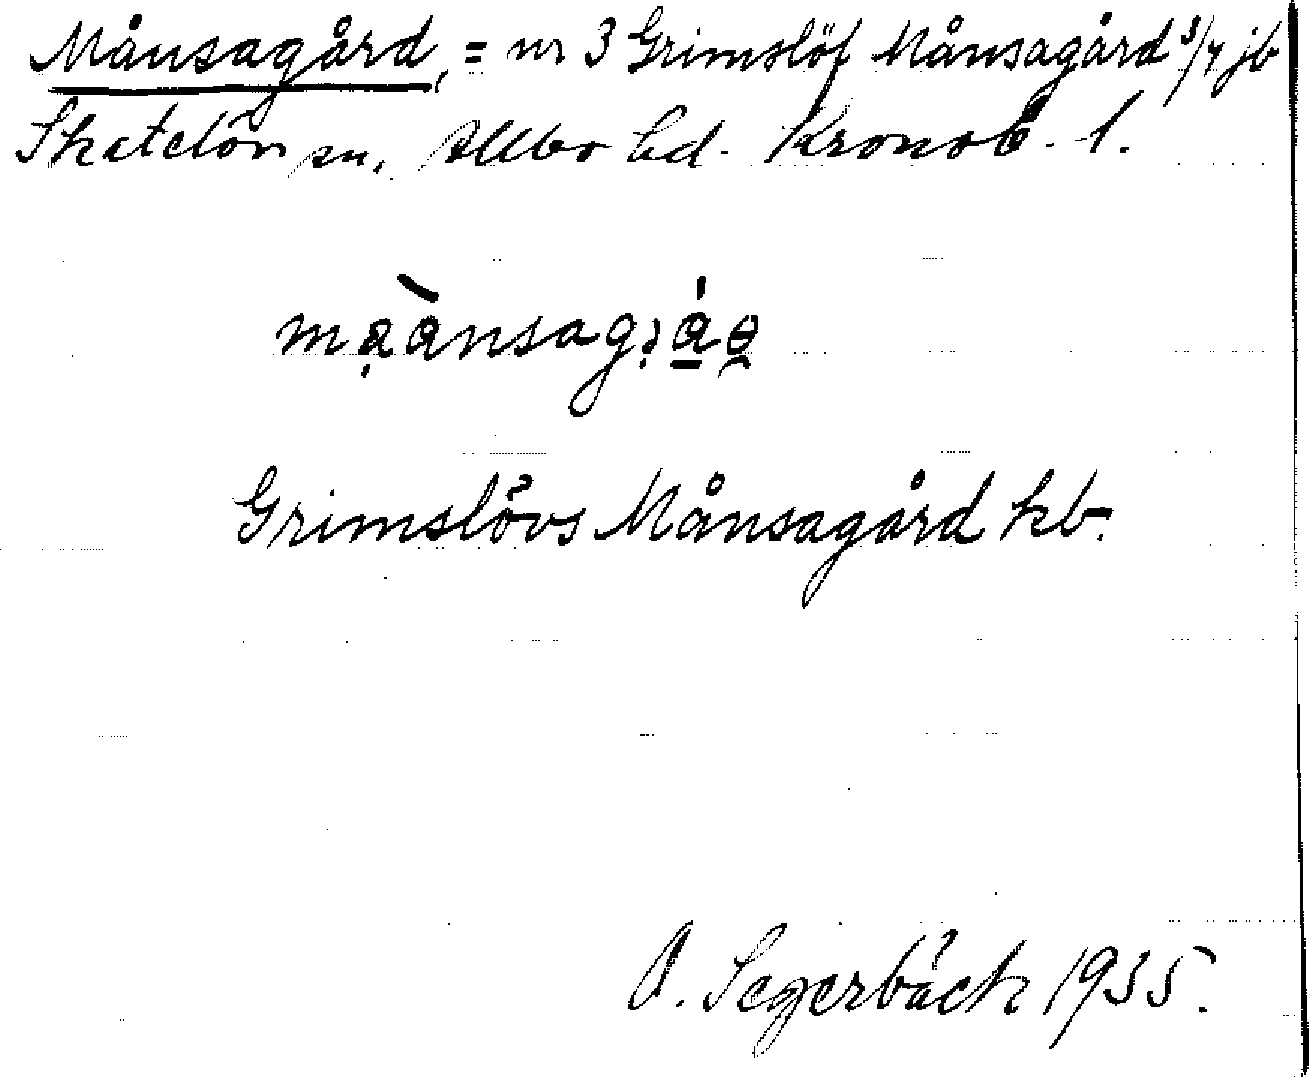 Månsagård, = nr 3 Grimslöf Månsagård 3/4 jb
Skatelöv sn, Allbo hd. Kronob. l.
Grimslövs Månsagård kb.
A. Segerbäck 1935.